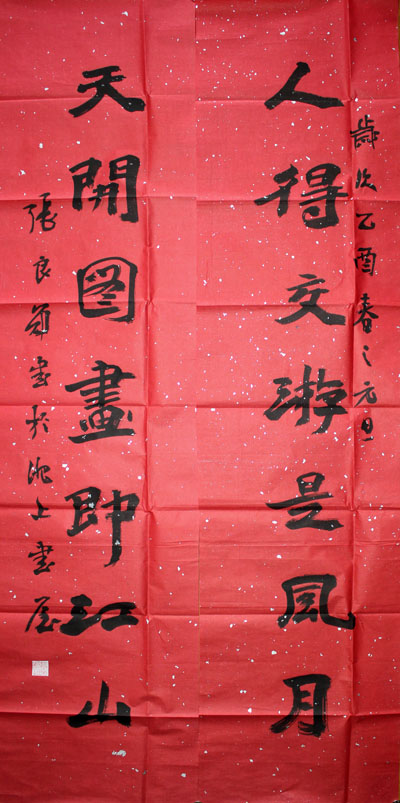 歲次乙酉春之元旦
人得交游是風月
天開圖畫即江山
張良書於上書屋